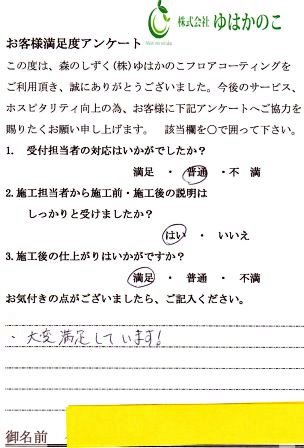 株式会社 ゆはかのこ
お客様満足度アンケート
この度は、森のしずく(株)ゆはかのこフロアコーティングを
ご利用頂き、誠にありがとうございました。今後のサービス、
ホスピタリティ向上の為、お客様に下記アンケートへご協力を
賜りたくお願い申し上げます。 該当欄を〇で囲って下さい。
1. 受付担当者の対応はいかがでしたか?
満足 ・ 普通 ・不 満
2.施工担当者から施工前・施工後の説明は
しっかりと受けましたか?
はい ・ いいえ
3.施工後の仕上がりはいかがですか?
満足 ・ 普通 ・ 不満
お気付きの点がございましたら、ご記入ください。
・大変満足しています!
御名前